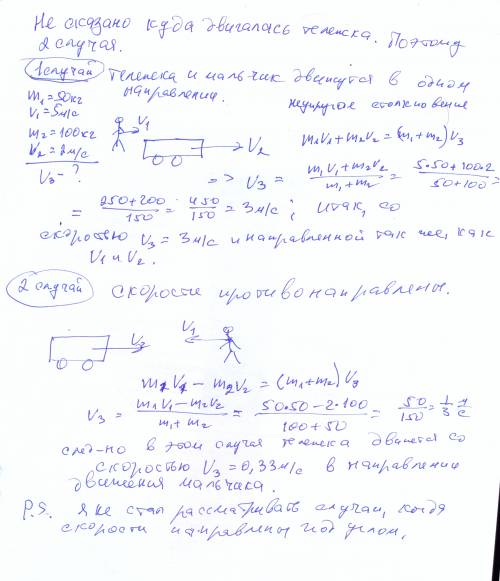 Не сказано куда двигалась тележка. Поэтому
2 случая.
1 случай Тележка и мальчик движутся в одном
направлении.
m₁=50кг
V₁=5м/с
m₂=100кг
V₂=2м/с
V₃-?
неупругое столкновение
V₁
V₂
m₁V₁+m₂V₂=(m₁+m₂)V₃
=> V₃ = (m₁V₁+m₂V₂)/(m₁+m₂) = (5·50+100·2)/(50+100) =
= (250+200)/150 = 450/150 = 3м/с; итак, со
скоростью V₃=3м/с и направленной так же, как
V₁ и V₂.
2 случай скорости противонаправлены.
V₂
V₁
m₁V₁-m₂V₂=(m₁+m₂)V₃
V₃ = (m₁V₁-m₂V₂)/(m₁+m₂) = (50·50-2·100)/(100+50) = 50/150 = 1/3 м/с
след-но в этом случае тележка движется со
скоростью V₃=0,33м/с в направление
движения мальчика.
P.S. Я не стал рассматривать случаи, когда
скорости направлены под углом.